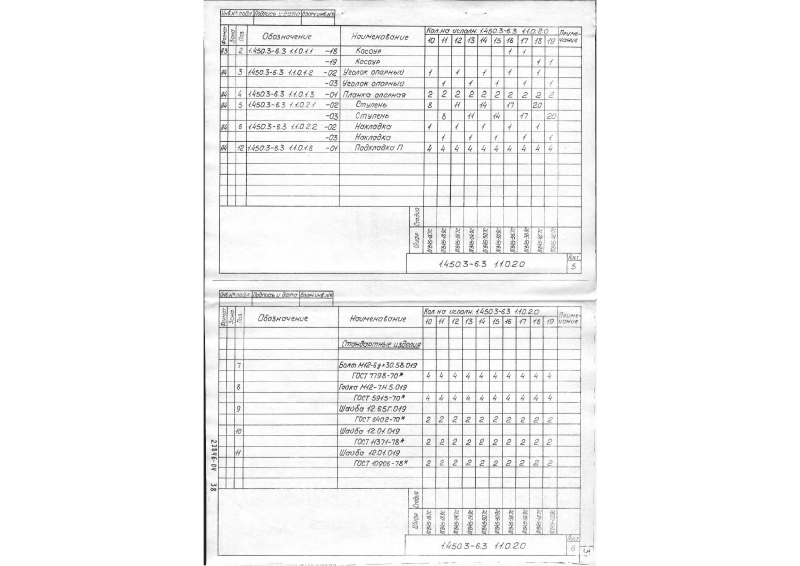 Инв.№ подл. Подпись и дата Взам.инв.№
Формат Зона Поз. Обозначение Наименование Кол. на исполн. 1.450.3-6.3 1.1.0.2.0 Приме-чание
10 11 12 13 14 15 16 17 18 19
А3 2 1.450.3-6.3 1.1.0.1.1 -18 Косоур 1 1
-19 Косоур 1 1
А4 3 1.450.3-6.3 1.1.0.1.2 -02 Уголок опорный 1 1 1 1 1
-03 Уголок опорный 1 1 1 1 1
А4 4 1.450.3-6.3 1.1.0.1.3 -01 Планка опорная 2 2 2 2 2 2 2 2 2 2
А4 5 1.450.3-6.3 1.1.0.2.1 -02 Ступень 8 11 14 17 20
-03 Ступень 8 11 14 17 20
А4 6 1.450.3-6.3 1.1.0.2.2 -02 Накладка 1 1 1 1 1
-03 Накладка 1 1 1 1 1
А4 12 1.450.3-6.3 1.1.0.1.6 -01 Подкладка П 4 4 4 4 4 4 4 4 4 4
Стадия
Шифр
1.450.3-6.3 1.1.0.2.0
Лист
5
Инв.№ подл. Подпись и дата Взам.инв.№
Формат Зона Поз. Обозначение Наименование Кол. на исполн. 1.450.3-6.3 1.1.0.2.0 Приме-чание
10 11 12 13 14 15 16 17 18 19
Стандартные изделия
7 Болт М12-6g×30.58.019
ГОСТ 7798-70* 4 4 4 4 4 4 4 4 4 4
8 Гайка М12-7Н.5.019
ГОСТ 5915-70* 4 4 4 4 4 4 4 4 4 4
9 Шайба 12.65Г.019
ГОСТ 6402-70* 2 2 2 2 2 2 2 2 2 2
10 Шайба 12.01.019
ГОСТ 11371-78* 2 2 2 2 2 2 2 2 2 2
11 Шайба 12.01.019
ГОСТ 10906-78* 2 2 2 2 2 2 2 2 2 2
23846-04 38
Стадия
Шифр
1.450.3-6.3 1.1.0.2.0
Лист
6